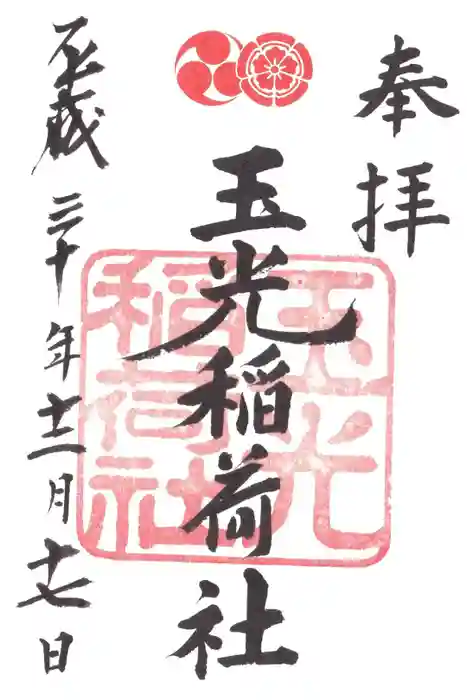 奉拝
玉光稲荷社
玉光
稲荷社
平成三十年十二月十七日